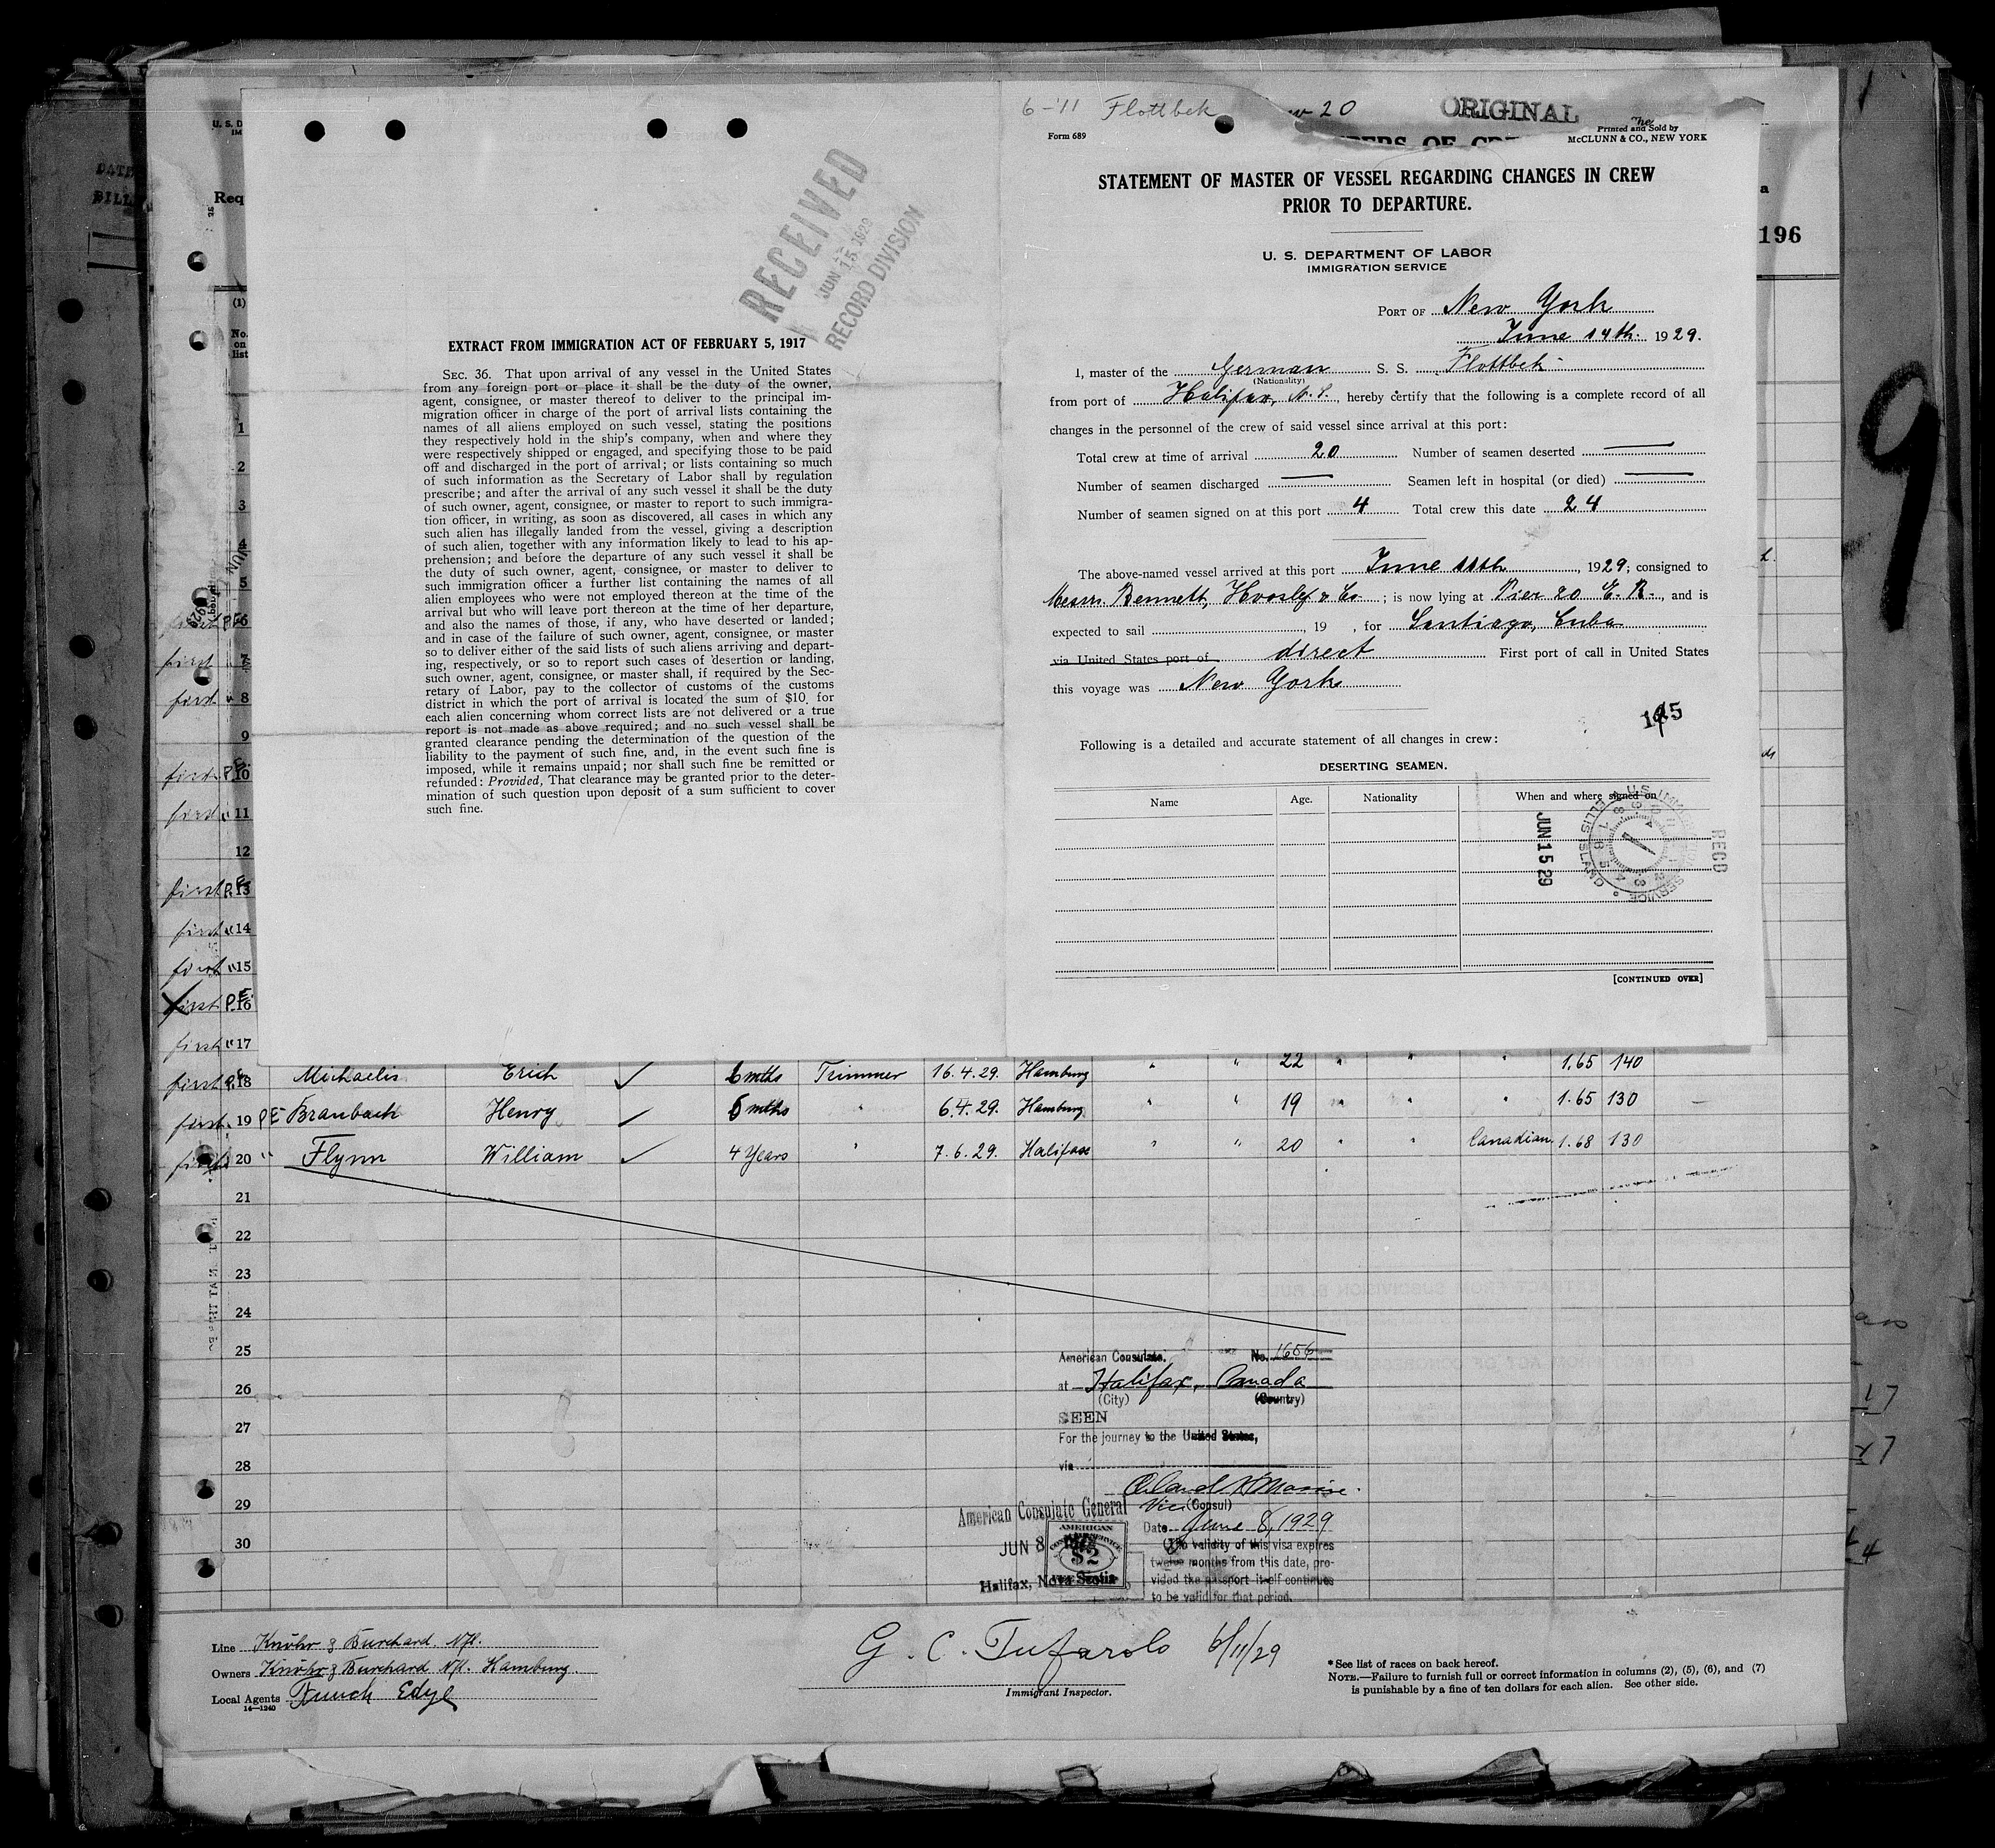 6-11 Flottbek 20
ORIGINAL
Form 689
Printed and Sold by
McCLUNN & CO., NEW YORK
STATEMENT OF MASTER OF VESSEL REGARDING CHANGES IN CREW
PRIOR TO DEPARTURE.
U. S. DEPARTMENT OF LABOR
IMMIGRATION SERVICE
PORT OF New York
June 14th. 1929.
I, master of the German S. S. Flottbek
(Nationality)
from port of Halifax, N.S., hereby certify that the following is a complete record of all
changes in the personnel of the crew of said vessel since arrival at this port:
Total crew at time of arrival 20 Number of seamen deserted —
Number of seamen discharged — Seamen left in hospital (or died) —
Number of seamen signed on at this port 4 Total crew this date 24
The above-named vessel arrived at this port June 11th, 1929; consigned to
Messrs. Bennett, & Co ; is now lying at Pier 20 E. R., and is
expected to sail , 19 , for Santiago, Cuba
via United States port of direct First port of call in United States
this voyage was New York
Following is a detailed and accurate statement of all changes in crew:
DESERTING SEAMEN.
Name Age. Nationality When and where signed on
JUN 15 29
RECD
U. S. IMMIGRATION SERVICE
ELLIS ISLAND
[CONTINUED OVER]
RECEIVED
JUN 15 1929
RECORD DIVISION
EXTRACT FROM IMMIGRATION ACT OF FEBRUARY 5, 1917
SEC. 36. That upon arrival of any vessel in the United States
from any foreign port or place it shall be the duty of the owner,
agent, consignee, or master thereof to deliver to the principal im-
migration officer in charge of the port of arrival lists containing the
names of all aliens employed on such vessel, stating the positions
they respectively hold in the ship's company, when and where they
were respectively shipped or engaged, and specifying those to be paid
off and discharged in the port of arrival; or lists containing so much
of such information as the Secretary of Labor shall by regulation
prescribe; and after the arrival of any such vessel it shall be the duty
of such owner, agent, consignee, or master to report to such immigra-
tion officer, in writing, as soon as discovered, all cases in which any
such alien has illegally landed from the vessel, giving a description
of such alien, together with any information likely to lead to his ap-
prehension; and before the departure of any such vessel it shall be
the duty of such owner, agent, consignee, or master to deliver to
such immigration officer a further list containing the names of all
alien employees who were not employed thereon at the time of the
arrival but who will leave port thereon at the time of her departure,
and also the names of those, if any, who have deserted or landed;
and in case of the failure of such owner, agent, consignee, or master
so to deliver either of the said lists of such aliens arriving and depart-
ing, respectively, or so to report such cases of desertion or landing,
such owner, agent, consignee, or master shall, if required by the Sec-
retary of Labor, pay to the collector of customs of the customs
district in which the port of arrival is located the sum of $10 for
each alien concerning whom correct lists are not delivered or a true
report is not made as above required; and no such vessel shall be
granted clearance pending the determination of the question of the
liability to the payment of such fine, and, in the event such fine is
imposed, while it remains unpaid; nor shall such fine be remitted or
refunded: Provided, That clearance may be granted prior to the deter-
mination of such question upon deposit of a sum sufficient to cover
such fine.
196
9
Req
(1)
No.
on
list
1
2
3
4
5
first P.E. 6
first 7
first " 8
9
first P.E. 10
first " 11
12
first P.E. 13
first " 14
first " 15
first P.E. 16
first " 17
first P.E. 18 Michaelis Erich ✓ 6 mths Trimmer 16.4.29. Hamburg " " 22 " " " 1.65 140
first 19 PE Braubach Henry ✓ 6 mths " 6.4.29. Hamburg " " 19 " " " 1.65 130 —
first 20 " Flynn William ✓ 4 Years " 7.6.29. Halifax " " 20 " " Canadian 1.68 130
21
22
23
24
25
26
27
28
29
30
American Consulate. No. 1656
at Halifax, Canada
(City) (Country)
SEEN
For the journey to the United States,
via
Vice (Consul)
Date June 8, 1929
The validity of this visa expires
twelve months from this date, pro-
vided the passport itself continues
to be valid for that period.
American Consulate General
JUN 8
AMERICAN
$2
Halifax, Nova Scotia
Line Knöhr & Burchard Nfl.
Owners Knöhr & Burchard Nfl. Hamburg.
Local Agents Funch Edye
14—1240
G. C. Tufarolo 6/11/29
Immigrant Inspector.
* See list of races on back hereof.
NOTE.—Failure to furnish full or correct information in columns (2), (5), (6), and (7)
is punishable by a fine of ten dollars for each alien. See other side.